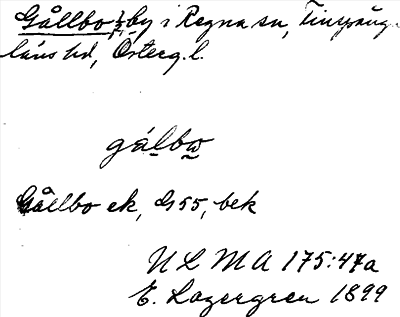 Gållbo by i Regna sn, Finspång-
läns hd, Österg. l.
gálbw
Gållbo ek, G 55, bek
ULMA 175:47a
E. Lagergren 1899